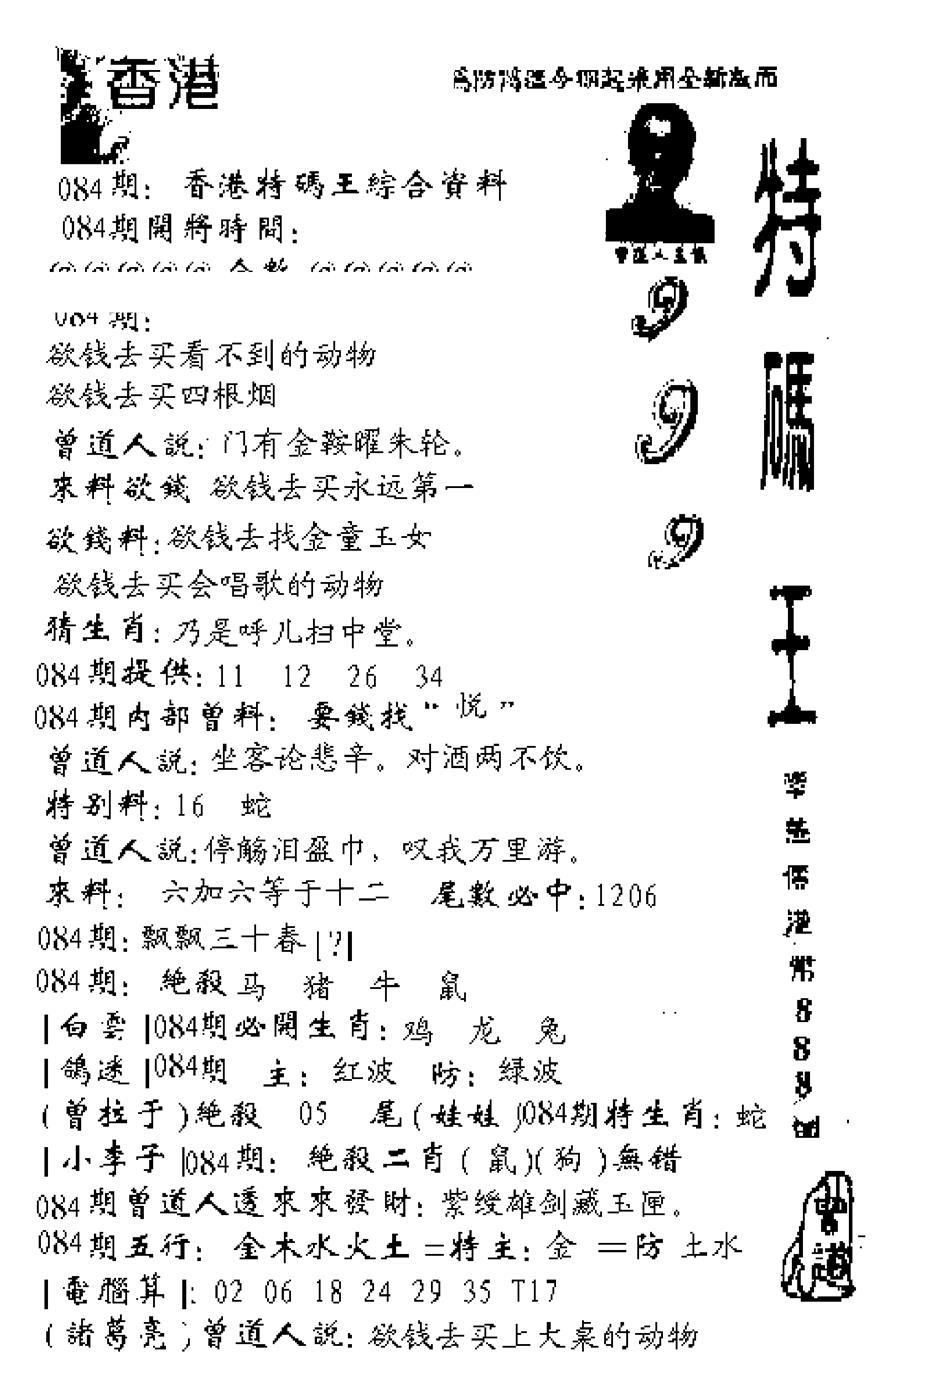 香港
084期：香港特碼王綜合資料
084期開將時間：
084期：
欲钱去买看不到的动物
欲钱去买四根烟
曾道人説：门有金鞍曜朱轮。
來料欲錢 欲钱去买永远第一
欲錢料：欲钱去找金童玉女
欲钱去买会唱歌的动物
猜生肖：乃是呼儿扫中堂。
084期提供：11 12 26 34
084期内部曾料： 要錢找“悦”
曾道人説：坐客论悲辛。对酒两不饮。
特别料：16 蛇
曾道人説：停觞泪盈巾，叹我万里游。
來料： 六加六等于十二 尾數必中：1206
084期：飘飘三十春[?]
084期： 絶殺马 猪 牛 鼠
|白雲|084期必開生肖：鸡 龙 兔
|鴿迷|084期 主：红波 防：绿波
(曾拉于)絶殺 05 尾(娃娃)084期特生肖：蛇
|小李子|084期： 絶殺二肖(鼠)(狗)無错
084期曾道人透來來發財：紫绶雄剑藏玉匣。
084期五行： 金木水火土=特主：金 =防 土水
|電腦算|：02 06 18 24 29 35 T17
(諸葛亮)曾道人説：欲钱去买上大桌的动物
9
9
9
特碼王
港幣888
曾道